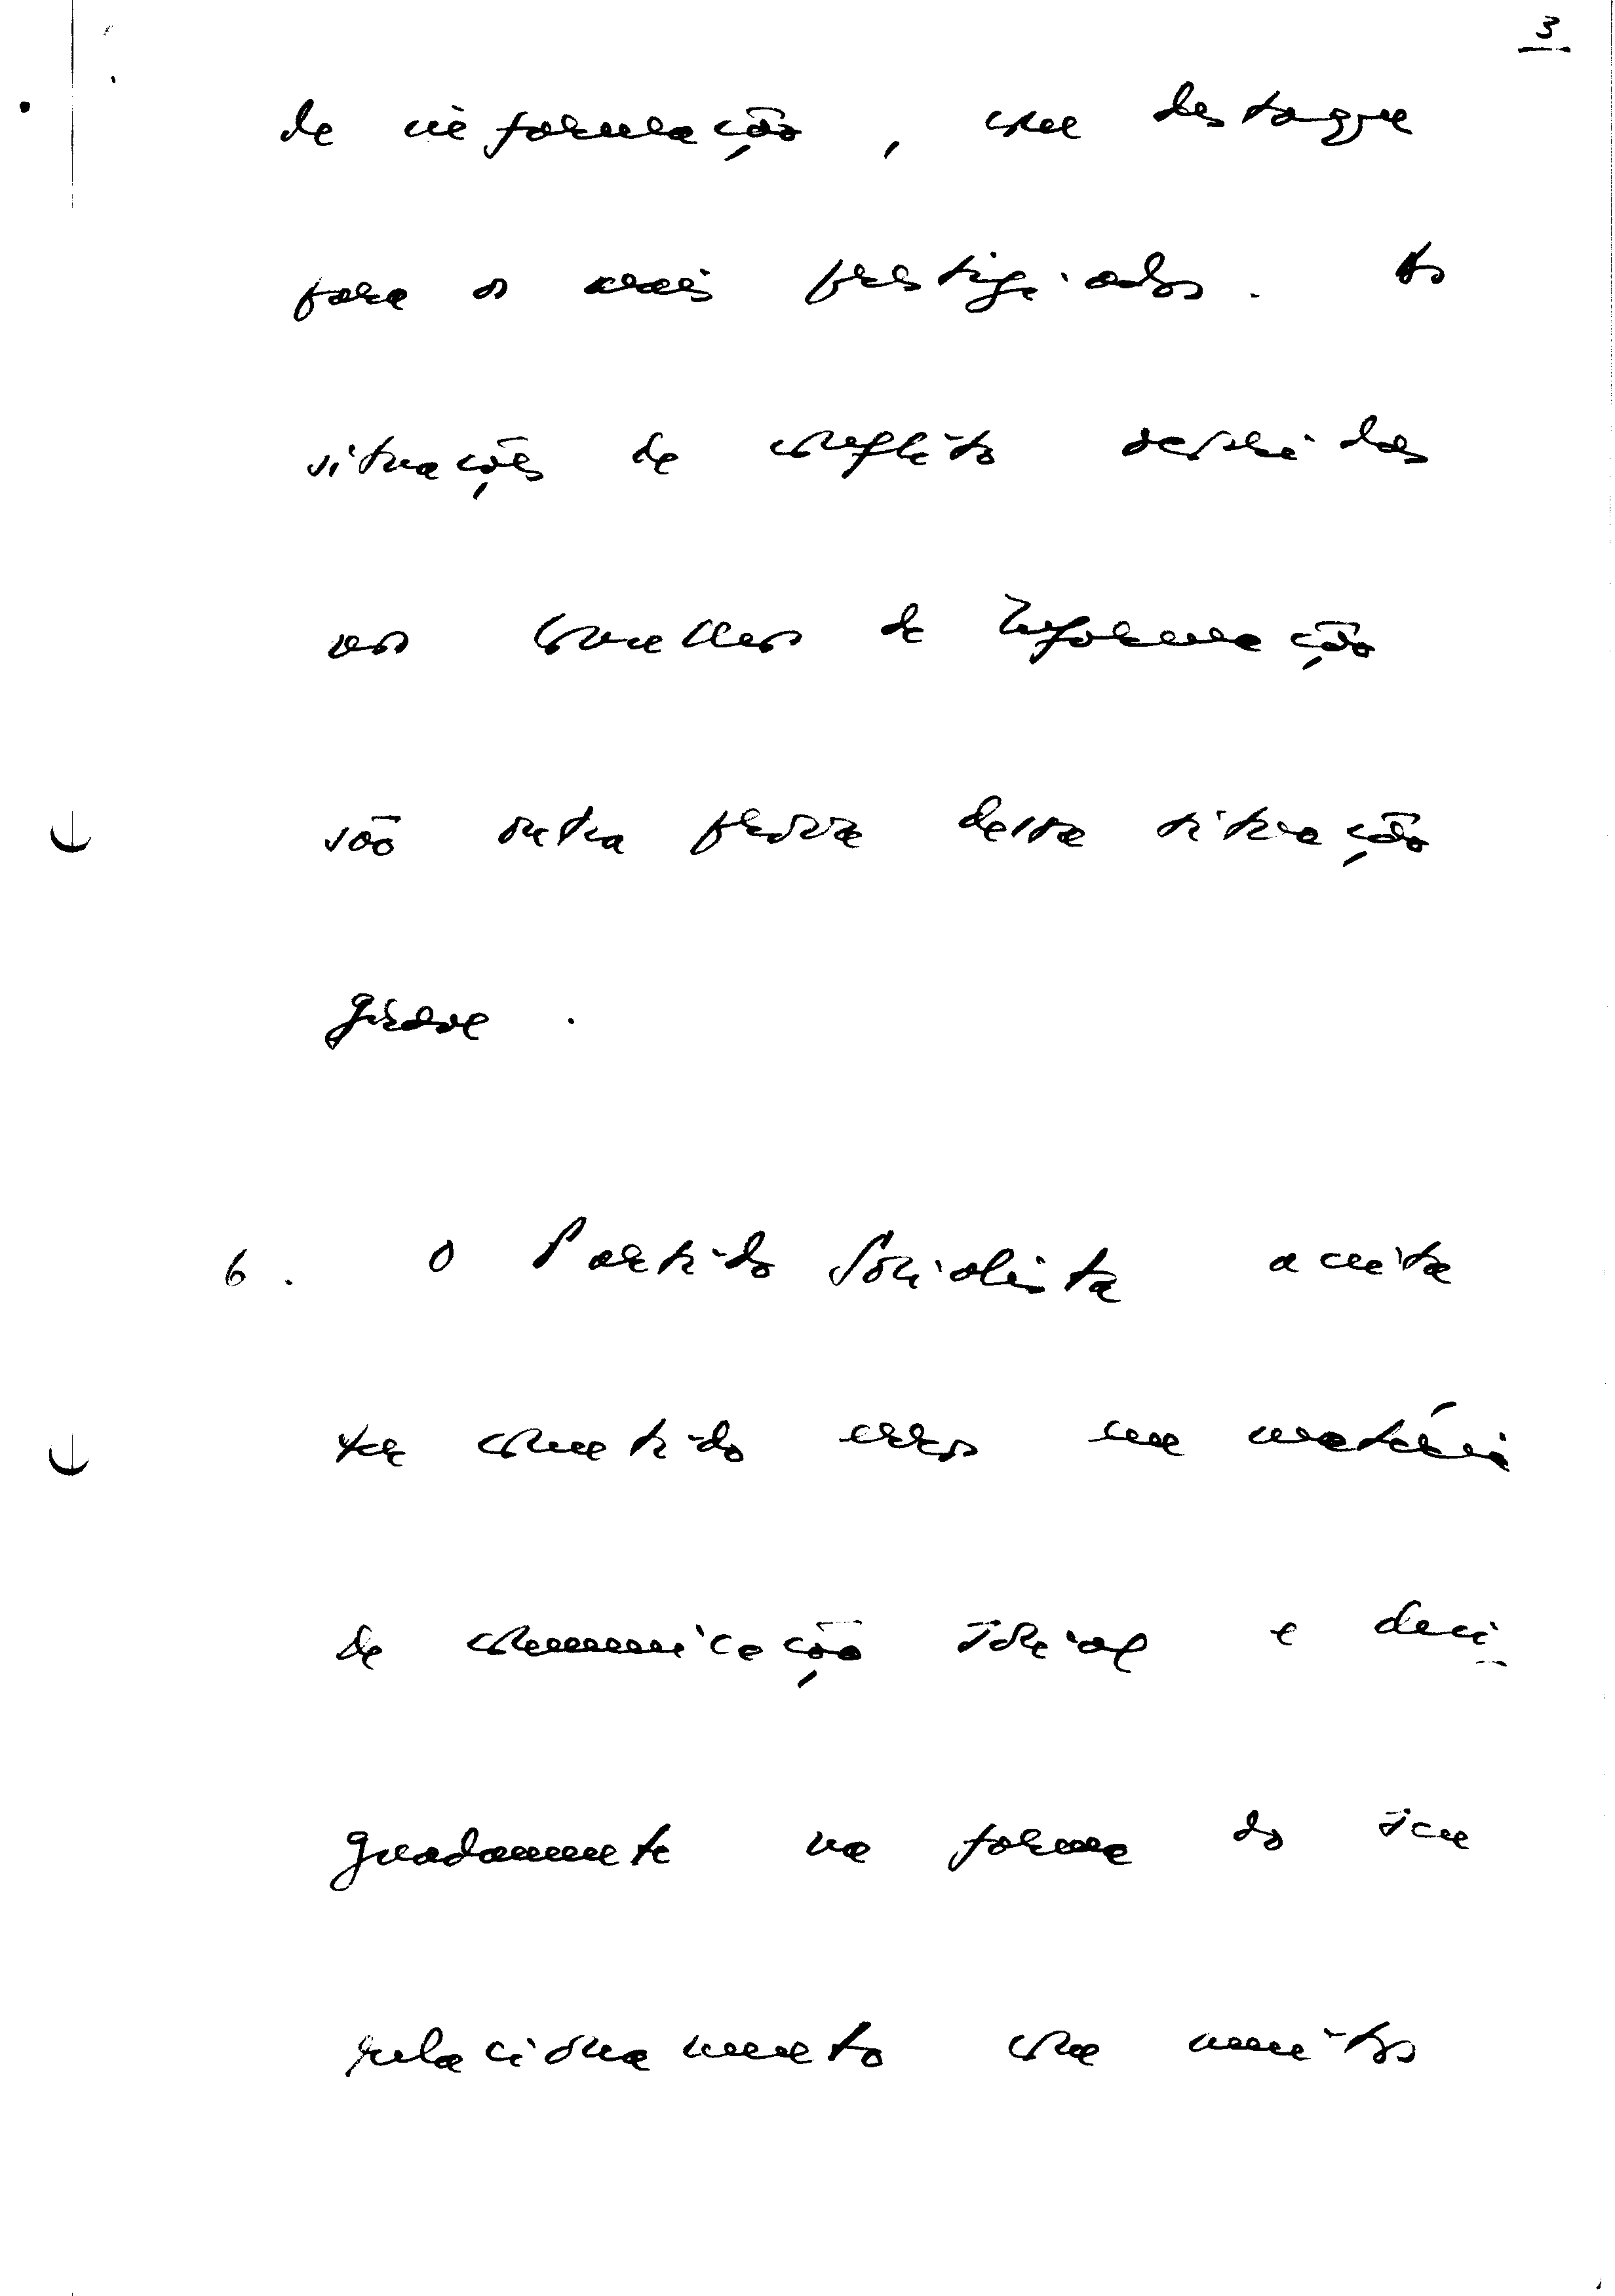 3
de informação, com destaque
para os mais prestigiados. As
situações de conflito
nos Conselhos de Informação
são outra prova dessa situação
grave.
6. O Partido Socialista aceita
ter cometido erros em matéria
de comunicação social e desi
gnadamente na forma do seu
relacionamento com muitos